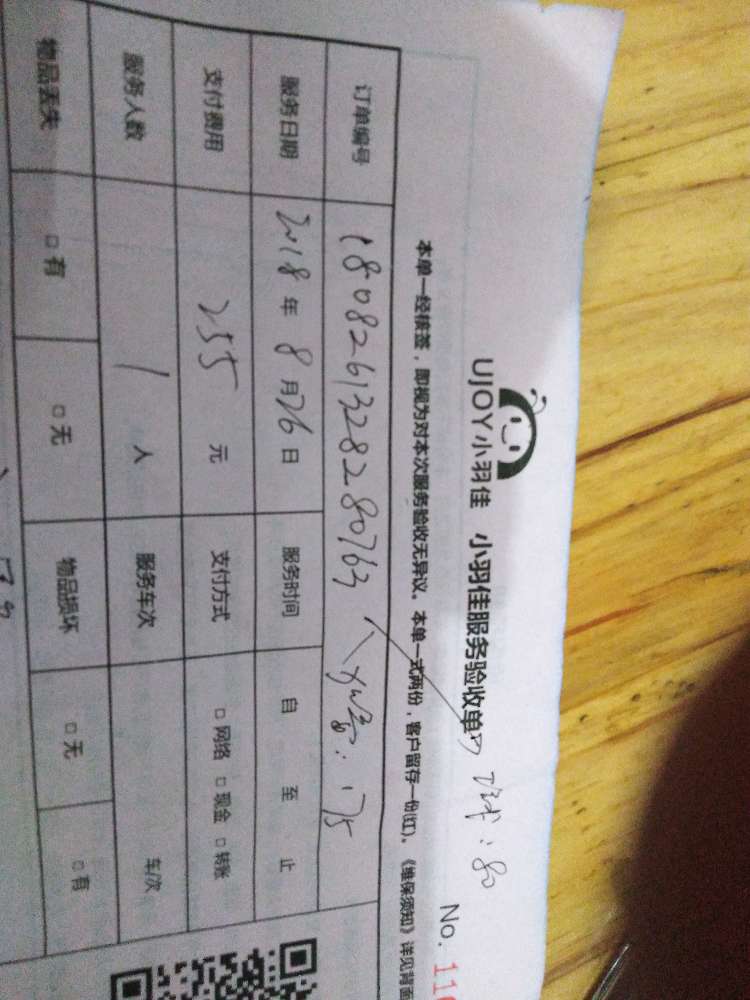 UJOY小羽佳 小羽佳服务验收单
No. 11
本单一经核签，即视为对本次服务验收无异议。本单一式两份，客户留存一份(红)。《维保须知》详见背面
订单编号 1808261328280763
175
80
服务日期 2018年8月26日 服务时间 自 至 止
支付费用 255元 支付方式 □网络 □现金 □转账
服务人数 1人 服务车次 车/次
物品丢失 □有 □无 物品损坏 □无 □有